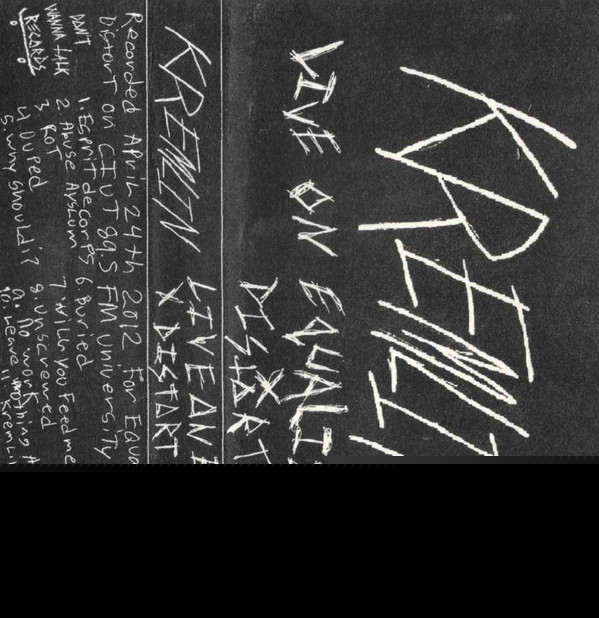 KREMLI
LIVE ON EQUALI
DISTORT
X
KREMLIN
LIVE ON E
X DISTORT
Recorded April 24th 2012 For Equa
Distort on CIUT 89.5 FM University
DON'T
WANNA TALK
RECORDS
1. Esprit de Corps
2. Abuse Asylum
3. ROT
4. Duped
5. Why Should i?
6. Buried
7. Will You Feed me
8. Unscrewed
9. No work
10. Leave nothing
11. Kremli